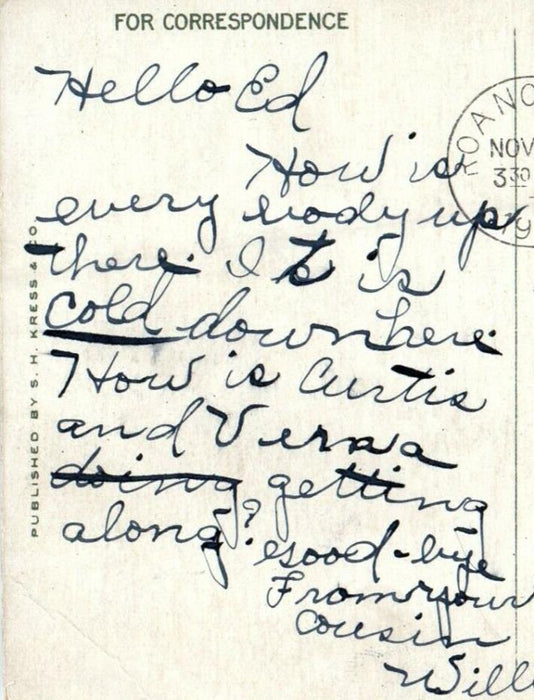 FOR CORRESPONDENCE
Hello Ed
How is
every body up
there. It is
cold down here.
How is Curtis
and Verna
doing getting
along?
Good-bye
From your
Cousin
Will
ROANO
NOV
3 30
PUBLISHED BY S. H. KRESS & CO